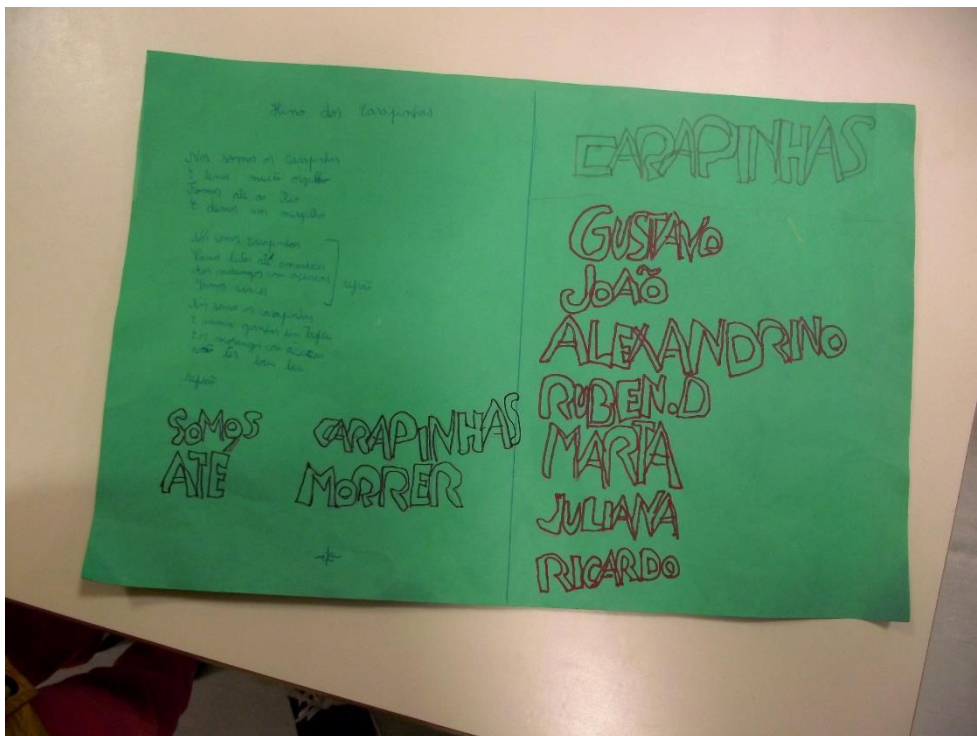 Hino dos Carapinhas
Nós somos os Carapinhas
E temos muito orgulho
Fomos até ao Rio
E demos um mergulho
Nós somos Carapinhas
até
dos morangos com açúcar
refrão
Nós somos os carapinhas
E vamos ganhar um Troféu
Dos morangos com açúcar
refrão
SOMOS CARAPINHAS
ATÉ MORRER
CARAPINHAS
GUSTAVO
JOÃO
ALEXANDRINO
RUBEN.D
MARTA
JULIANA
RICARDO